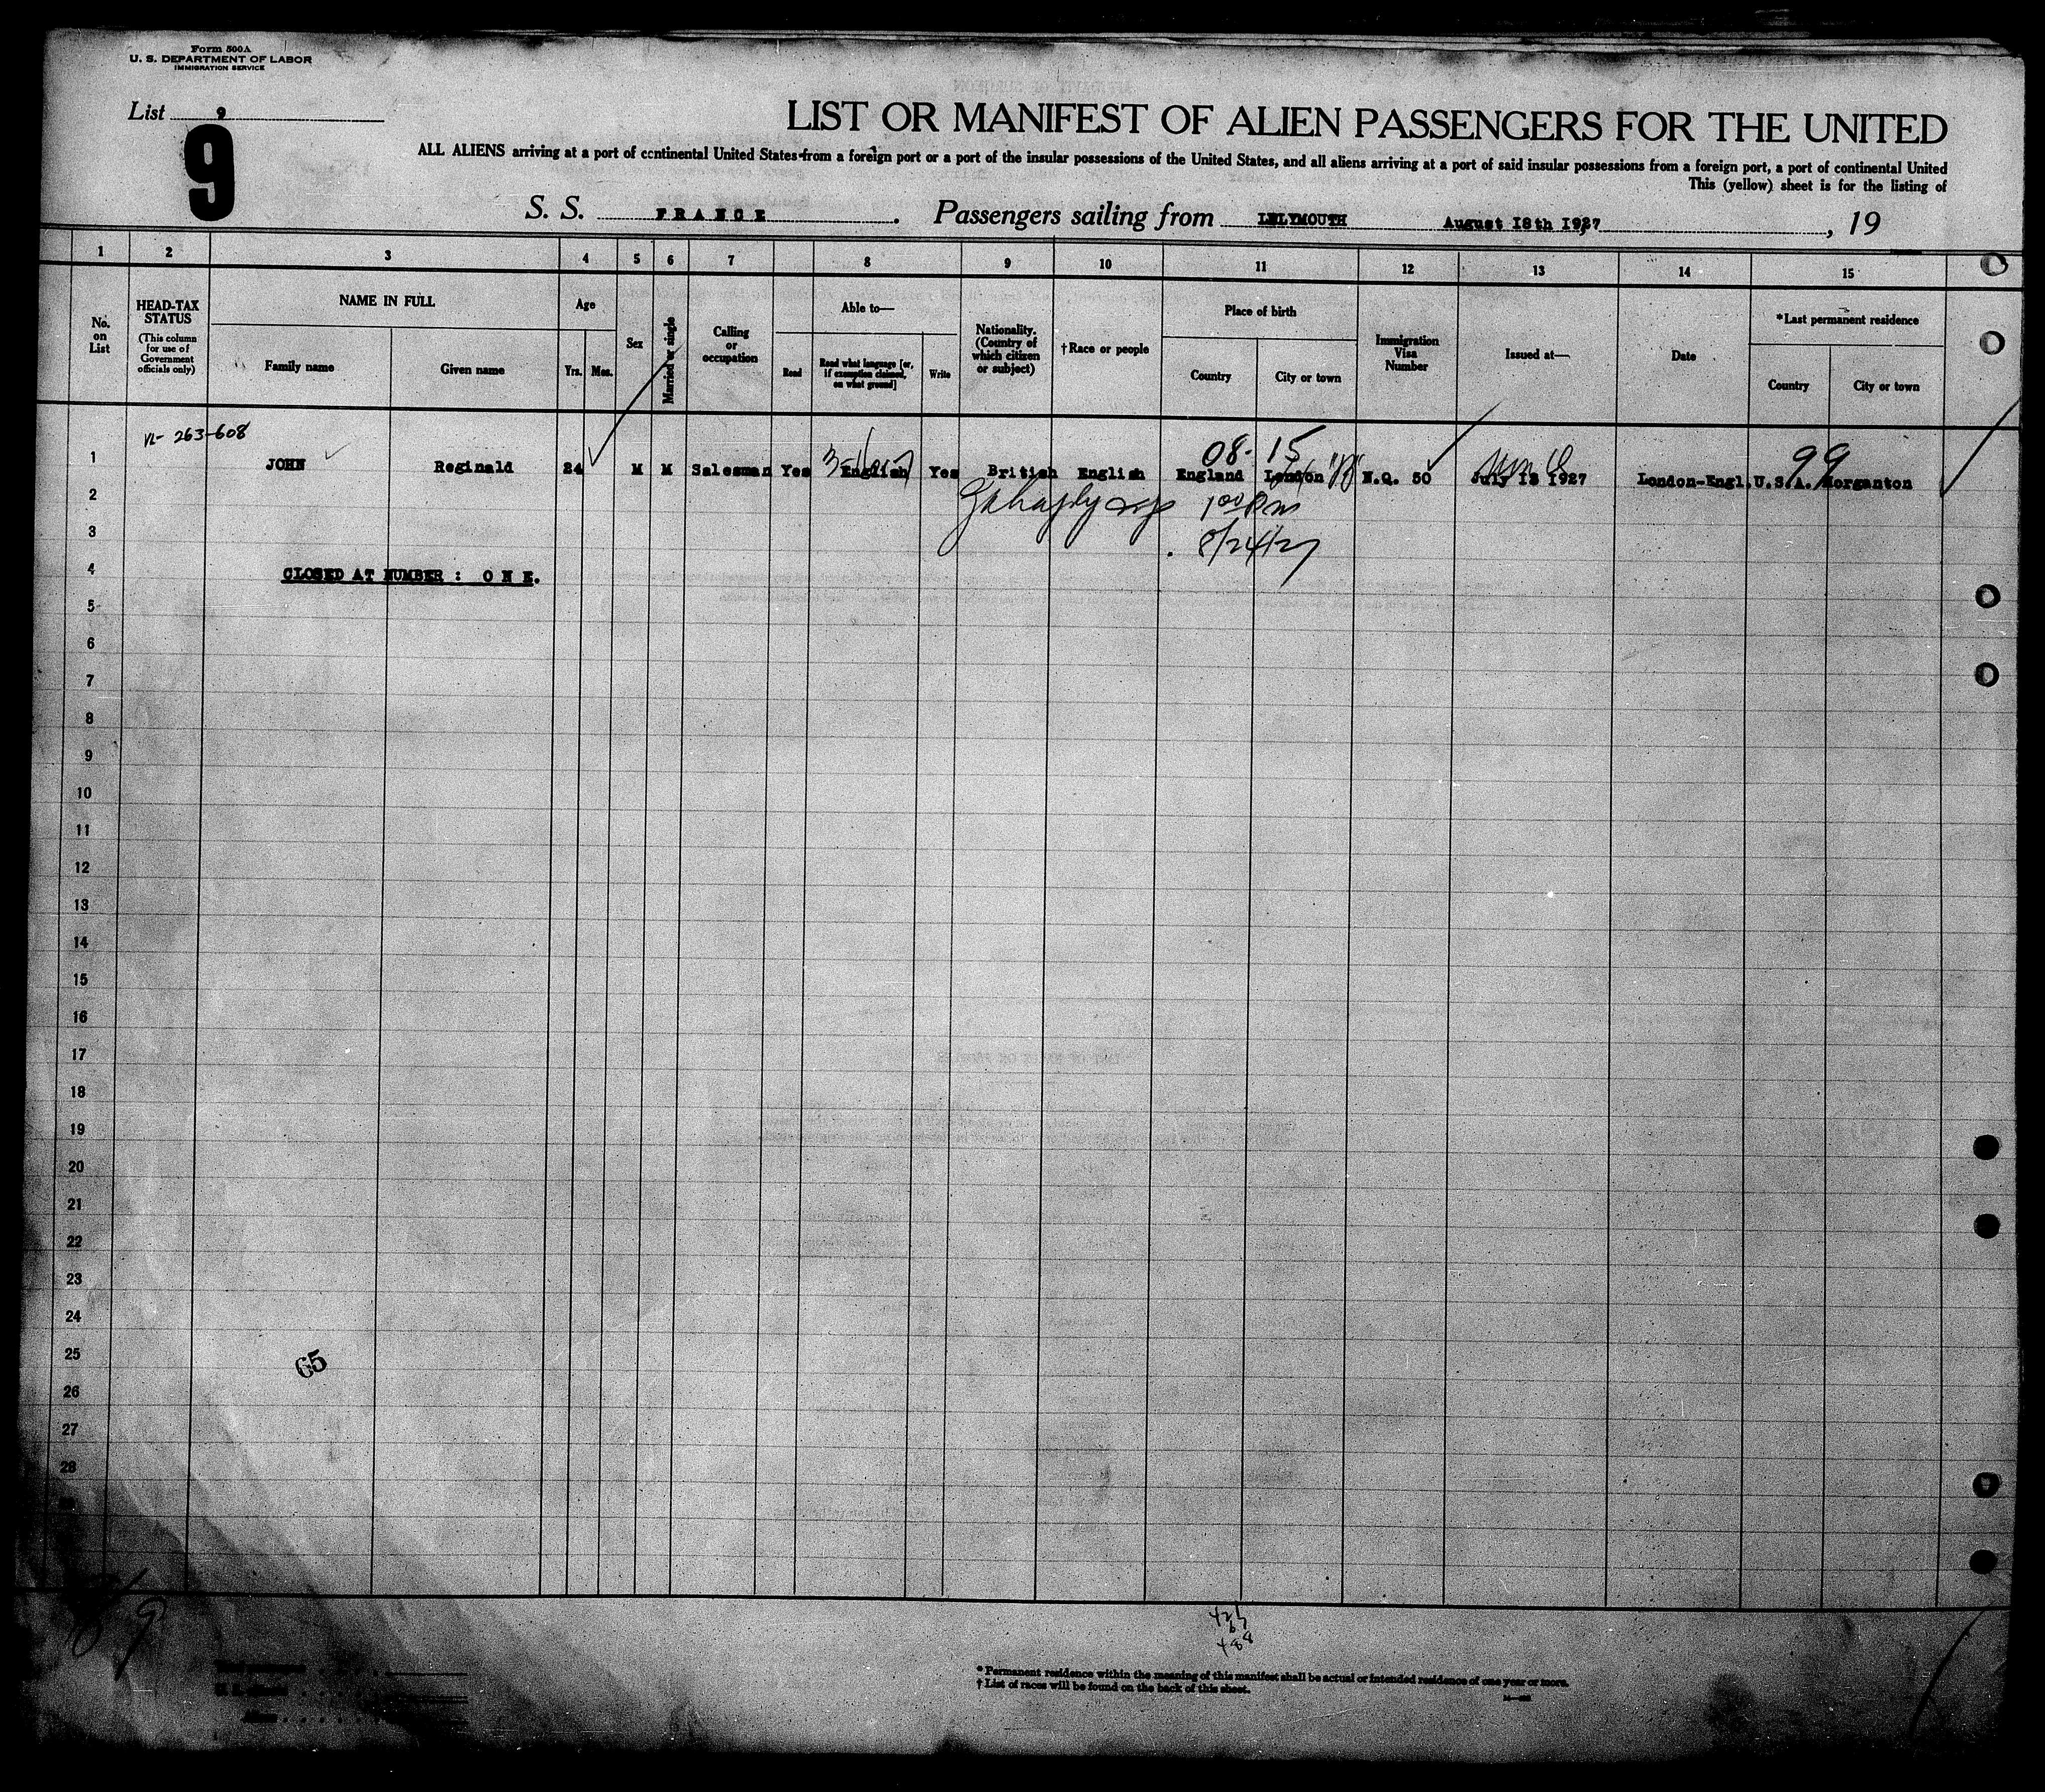 Form 500A
U. S. DEPARTMENT OF LABOR
IMMIGRATION SERVICE
List 9
9
LIST OR MANIFEST OF ALIEN PASSENGERS FOR THE UNITED
ALL ALIENS arriving at a port of continental United States from a foreign port or a port of the insular possessions of the United States, and all aliens arriving at a port of said insular possessions from a foreign port, a port of continental United
This (yellow) sheet is for the listing of
S. S. FRANCE. Passengers sailing from PLYMOUTH August 18th 1927, 19
1 2 3 4 5 6 7 8 9 10 11 12 13 14 15
No. on List
HEAD-TAX STATUS
(This column for use of Government officials only)
NAME IN FULL
Family name
Given name
Age
Yrs. Mos.
Sex
Married or single
Calling or occupation
Able to—
Read
Read what language [or, if exemption claimed, on what ground]
Write
Nationality. (Country of which citizen or subject)
†Race or people
Place of birth
Country
City or town
Immigration Visa Number
Issued at—
Date
*Last permanent residence
Country
City or town
VL- 263-608
08- 15
99
1 JOHN Reginald 24 M M Salesman Yes English Yes British English England London N.Q. 50 July 13 1927 London-Engl. U.S.A. Morganton
2
3
8/24/27
4 CLOSED AT NUMBER : O N E.
5
6
7
8
9
10
11
12
13
14
15
16
17
18
19
20
21
22
23
24
25
65
26
27
28
* Permanent residence within the meaning of this manifest shall be actual or intended residence of one year or more.
† List of races will be found on the back of this sheet.